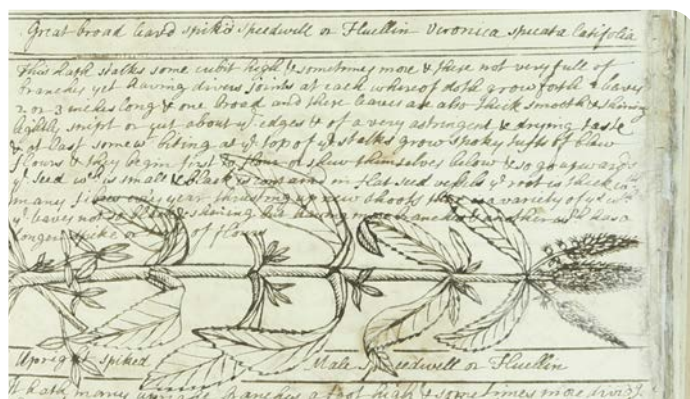 Great broad leav'd spik'd speedwell or Fluellin Veronica spicata latifolia
This hath stalks some cubit high & sometimes more & these not very full of
branches yet having divers joints at each whereof doth grow forth 2 leaves
2 or 3 inches long & one broad and these leaves are also thick smooth & shining
lightly snipt or cut about ye edges & of a very astringent & drying taste
& at last somew biting at ye top of ye stalks grow spoky tufts of blew
flours & they begin first to flour or shew themselves below & so go upwards
ye seed wch is small & black is contain'd in flat seed vessels ye root is thick
many fibers every year thrusting up new shoots there is a variety of ys
ye leaves not so & shining but having more branches & another wch has a
longer spike or of flours
Upright spiked Male Speedwell or Fluellin
It hath many upright branches a foot high & sometimes more divid